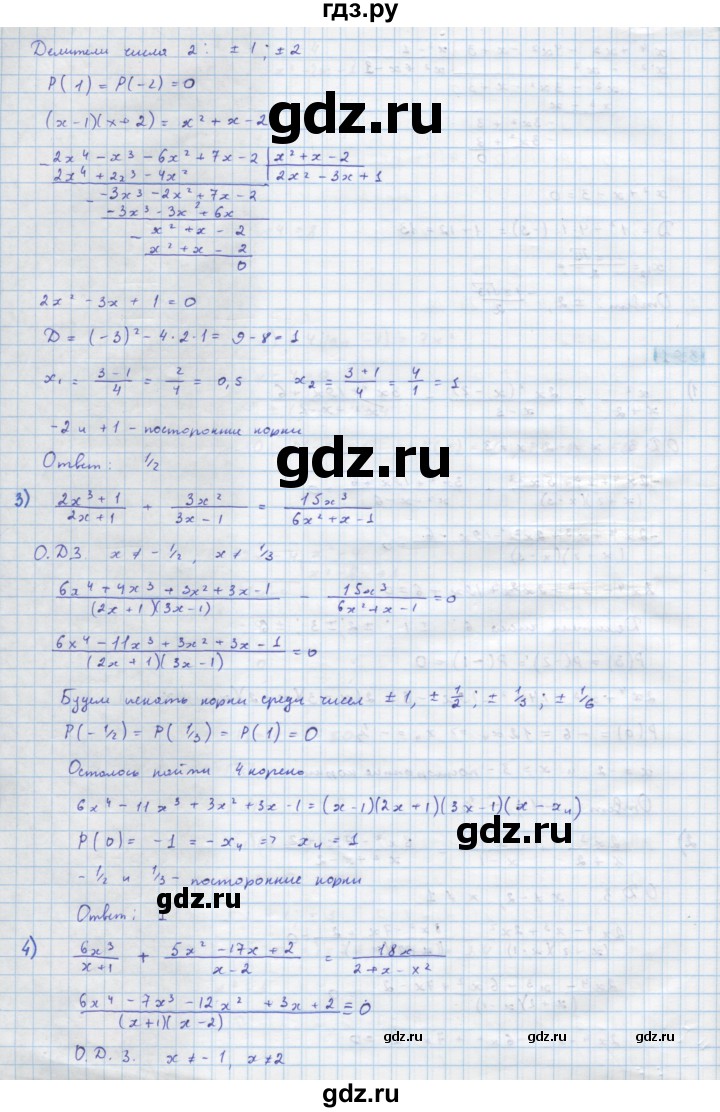 гдз.ру
Делители числа 2: ± 1 ; ± 2
P( 1) = P(-2) = 0
(x-1)(x+2) = x² + x - 2
2x⁴ - x³ - 6x² + 7x - 2 | x² + x - 2
2x⁴ + 2x³ - 4x² | 2x² - 3x + 1
-3x³ - 2x² + 7x - 2
-3x³ - 3x² + 6x
x² + x - 2
x² + x - 2
0
2x² - 3x + 1 = 0
D = (-3)² - 4·2·1 = 9 - 8 = 1
x₁ = (3-1)/4 = 2/4 = 0,5 x₂ = (3+1)/4 = 4/1 = 1
-2 и +1 - посторонние корни
Ответ: 1/2
3) (2x³+1)/(2x+1) + 3x²/(3x-1) = 15x³/(6x²+x-1)
О.Д.З. x ≠ -1/2, x ≠ 1/3
(6x⁴ + 4x³ + 3x² + 3x - 1)/((2x+1)(3x-1)) - 15x³/(6x²+x-1) = 0
(6x⁴ - 11x³ + 3x² + 3x - 1)/((2x+1)(3x-1)) = 0
Будем искать корни среди чисел ± 1, ± 1/2 ; ± 1/3 ; ± 1/6
P(-1/2) = P(1/3) = P(1) = 0
Осталось найти 4 корень
6x⁴ - 11x³ + 3x² + 3x - 1 = (x-1)(2x+1)(3x-1)(x-x₄)
P(0) = -1 = -x₄ => x₄ = 1
-1/2 и 1/3 - посторонние корни
Ответ: 1
4) 6x³/(x+1) + (5x² - 17x + 2)/(x-2) = 18x/(2+x-x²)
(6x⁴ - 7x³ - 12x² + 3x + 2)/((x+1)(x-2)) = 0
О.Д.З. x ≠ -1, x ≠ 2
gdz.ru
gdz.ru
gdz.ru
gdz.ru
gdz.ru
gdz.ru
gdz.ru
gdz.ru
gdz.ru
gdz.ru
gdz.ru
gdz.ru